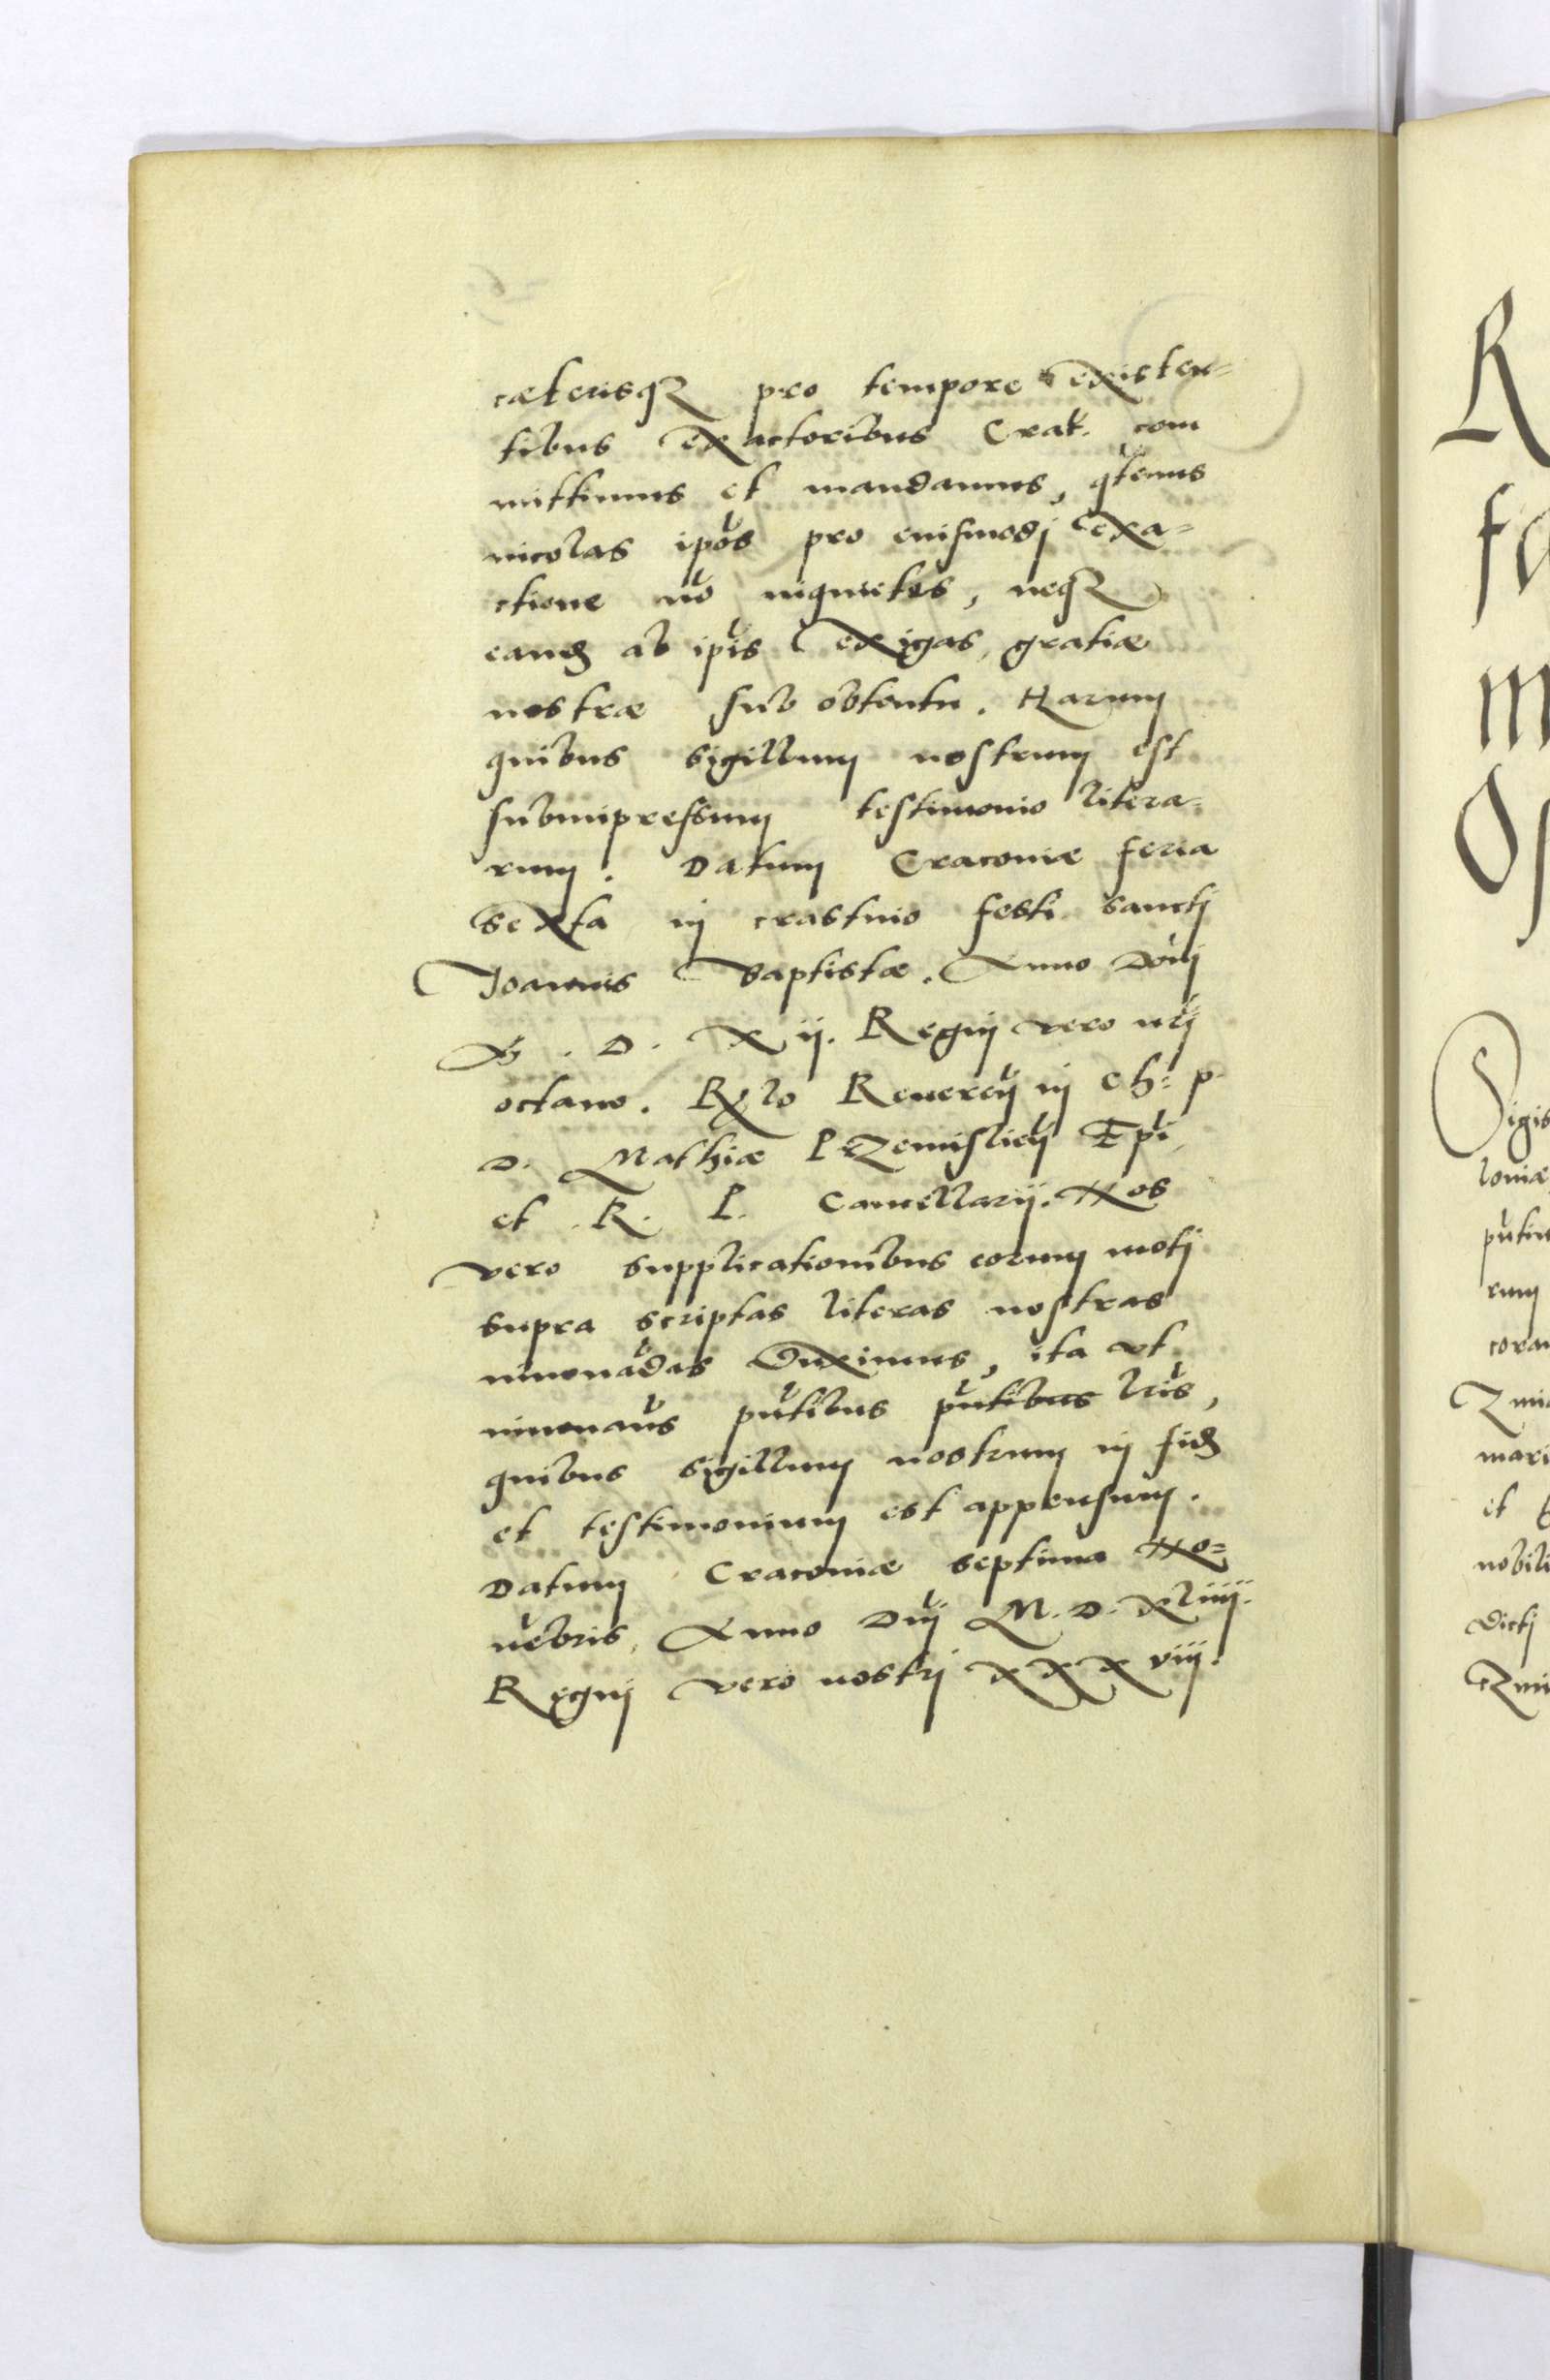 cæterisq3 pro tempore existen=
tibus exactoribus Crak. com
mittimus et mandamus, qtenus
incolas ipos pro euismodj exa=
ctione nō inquietes, neq3
eandē ab ipis exigas, gratiæ
nostræ sub obtentu. Harum
quibus sigillum nostrum est
subimpressum testimonio litera=
rum. Datum Cracoviæ feria
sexta in crastino festi sanctj
Joannis Baptistæ. Anno Dōnj
M. D. X ij. Regnj vero nrj
octavo. Rlo Reuerēj in Ch: p.
D. Mathiæ Przemislien̄ Epi,
et R. P. Cancellarij. Nos
vero supplicationibus eorum motj
supra scriptas literas nostras
innouādas duximus, ita vt
innouaūs pn̄tibus pn̄tibus lris,
quibus sigillum nostrum in fidē
et testimonium est appensum.
Datum Cracoviæ septima No=
uēbris, Anno Dnj M. D. xliiij.
Regnj vero nostrj xxxviij.
R
m
Sigis
loniæ
rum
coram
et
nobili
dictj